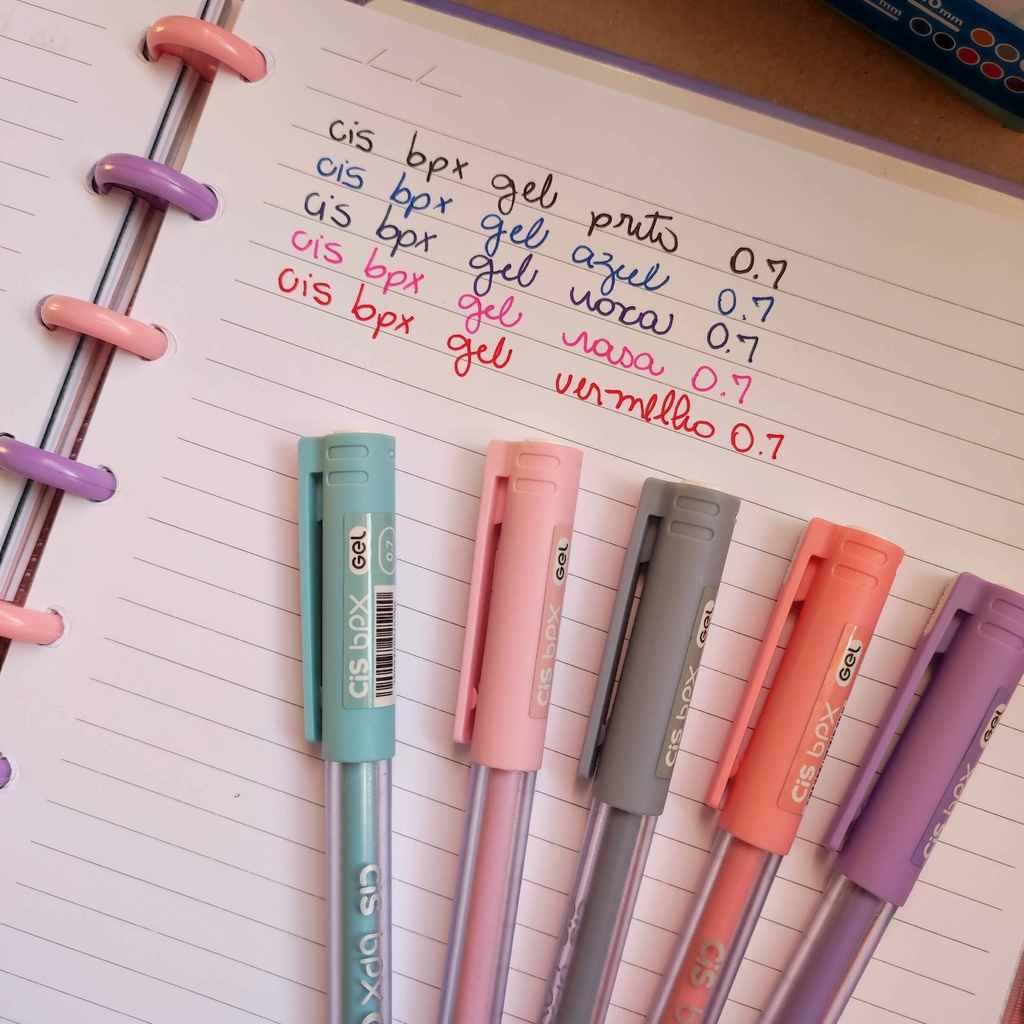 cis bpx gel preto 0.7
cis bpx gel azul 0.7
cis bpx gel roxa 0.7
cis bpx gel rosa 0.7
cis bpx gel vermelho 0.7
cis bpx GEL 0.7
cis bpx GEL
cis bpx GEL
cis bpx GEL
cis bpx GEL
cis bpx
cis b
mm
mm